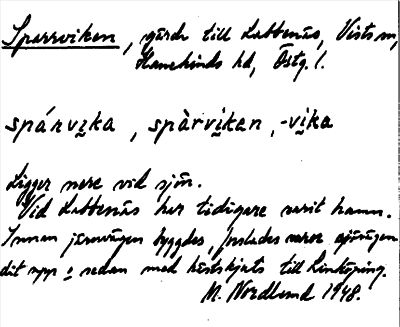 Sparrviken, gärde till Labbenäs, Vists sn,
Hanekinds hd, Östg. l.
spárvika, spàrvikan, -vika
Ligger nere vid sjön.
Vid Labbenäs har tidigare varit hamn.
Innan järnvägen byggdes, forslades varor sjövägen
dit upp o sedan med hästskjuts till Linköping.
M. Nordlund 1948.